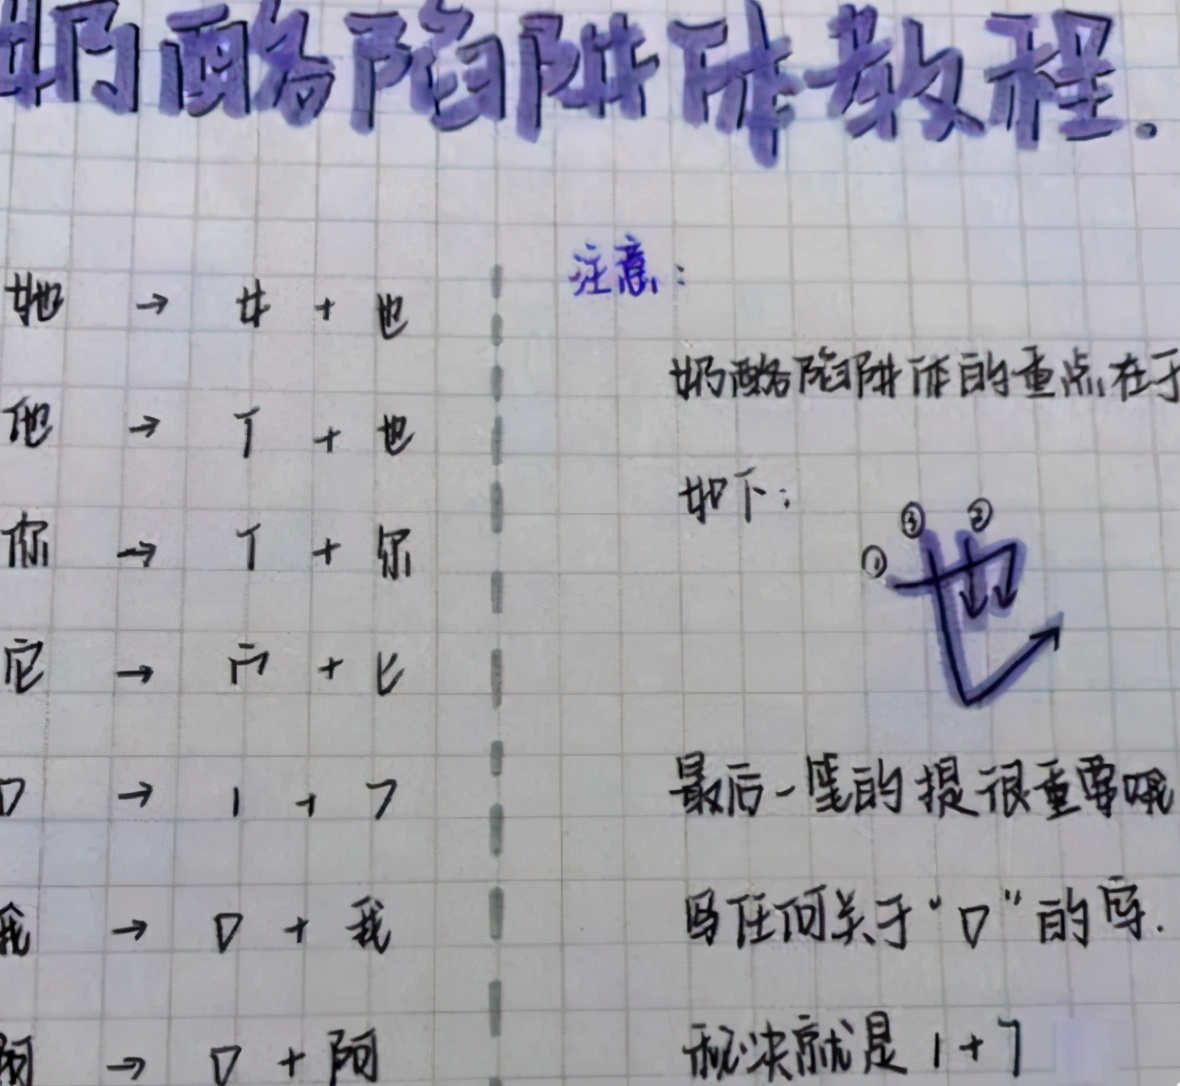 奶酪陷阱体教程.
她 → 女 + 也
他 → 亻 + 也
你 → 亻 + 尔
它 → 宀 + 匕
口 → 1 + 7
哦 → 口 + 我
啊 → 口 + 阿
注意:
奶酪陷阱体的重点在于
如下:
① ③ ②
也
最后一笔的提很重要哦
写任何关于“口”的字.
秘决就是 1+7